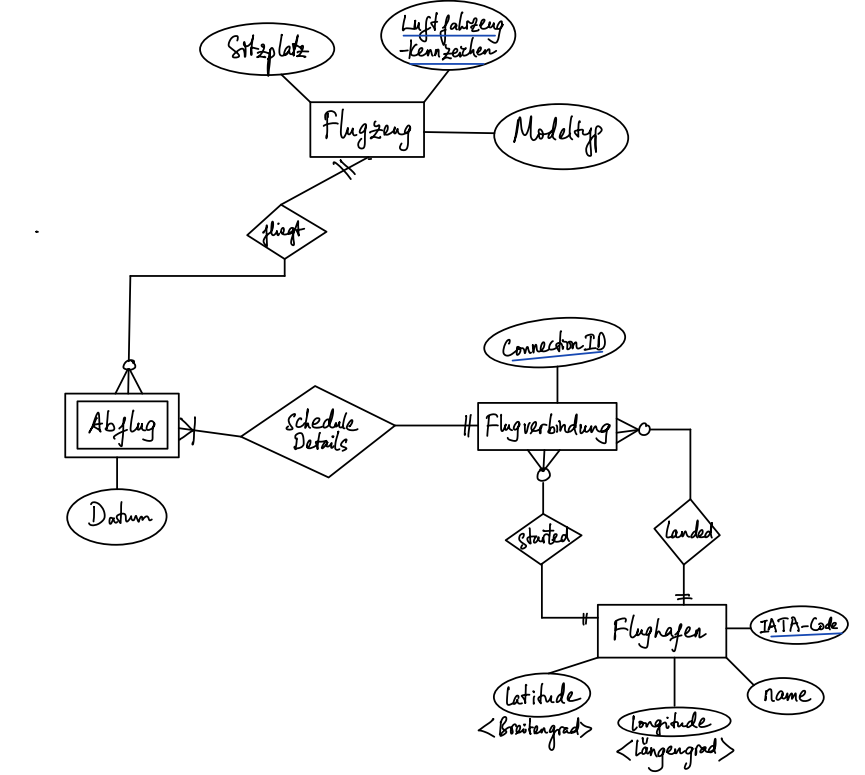 Sitzplatz
Luftfahrzeug
-Kennzeichen
Flugzeug
Modeltyp
fliegt
Connection ID
Abflug
Schedule
Details
Flugverbindung
Datum
started
landed
Flughafen
IATA-Code
Latitude
<Breitengrad>
Longitude
<Längengrad>
name